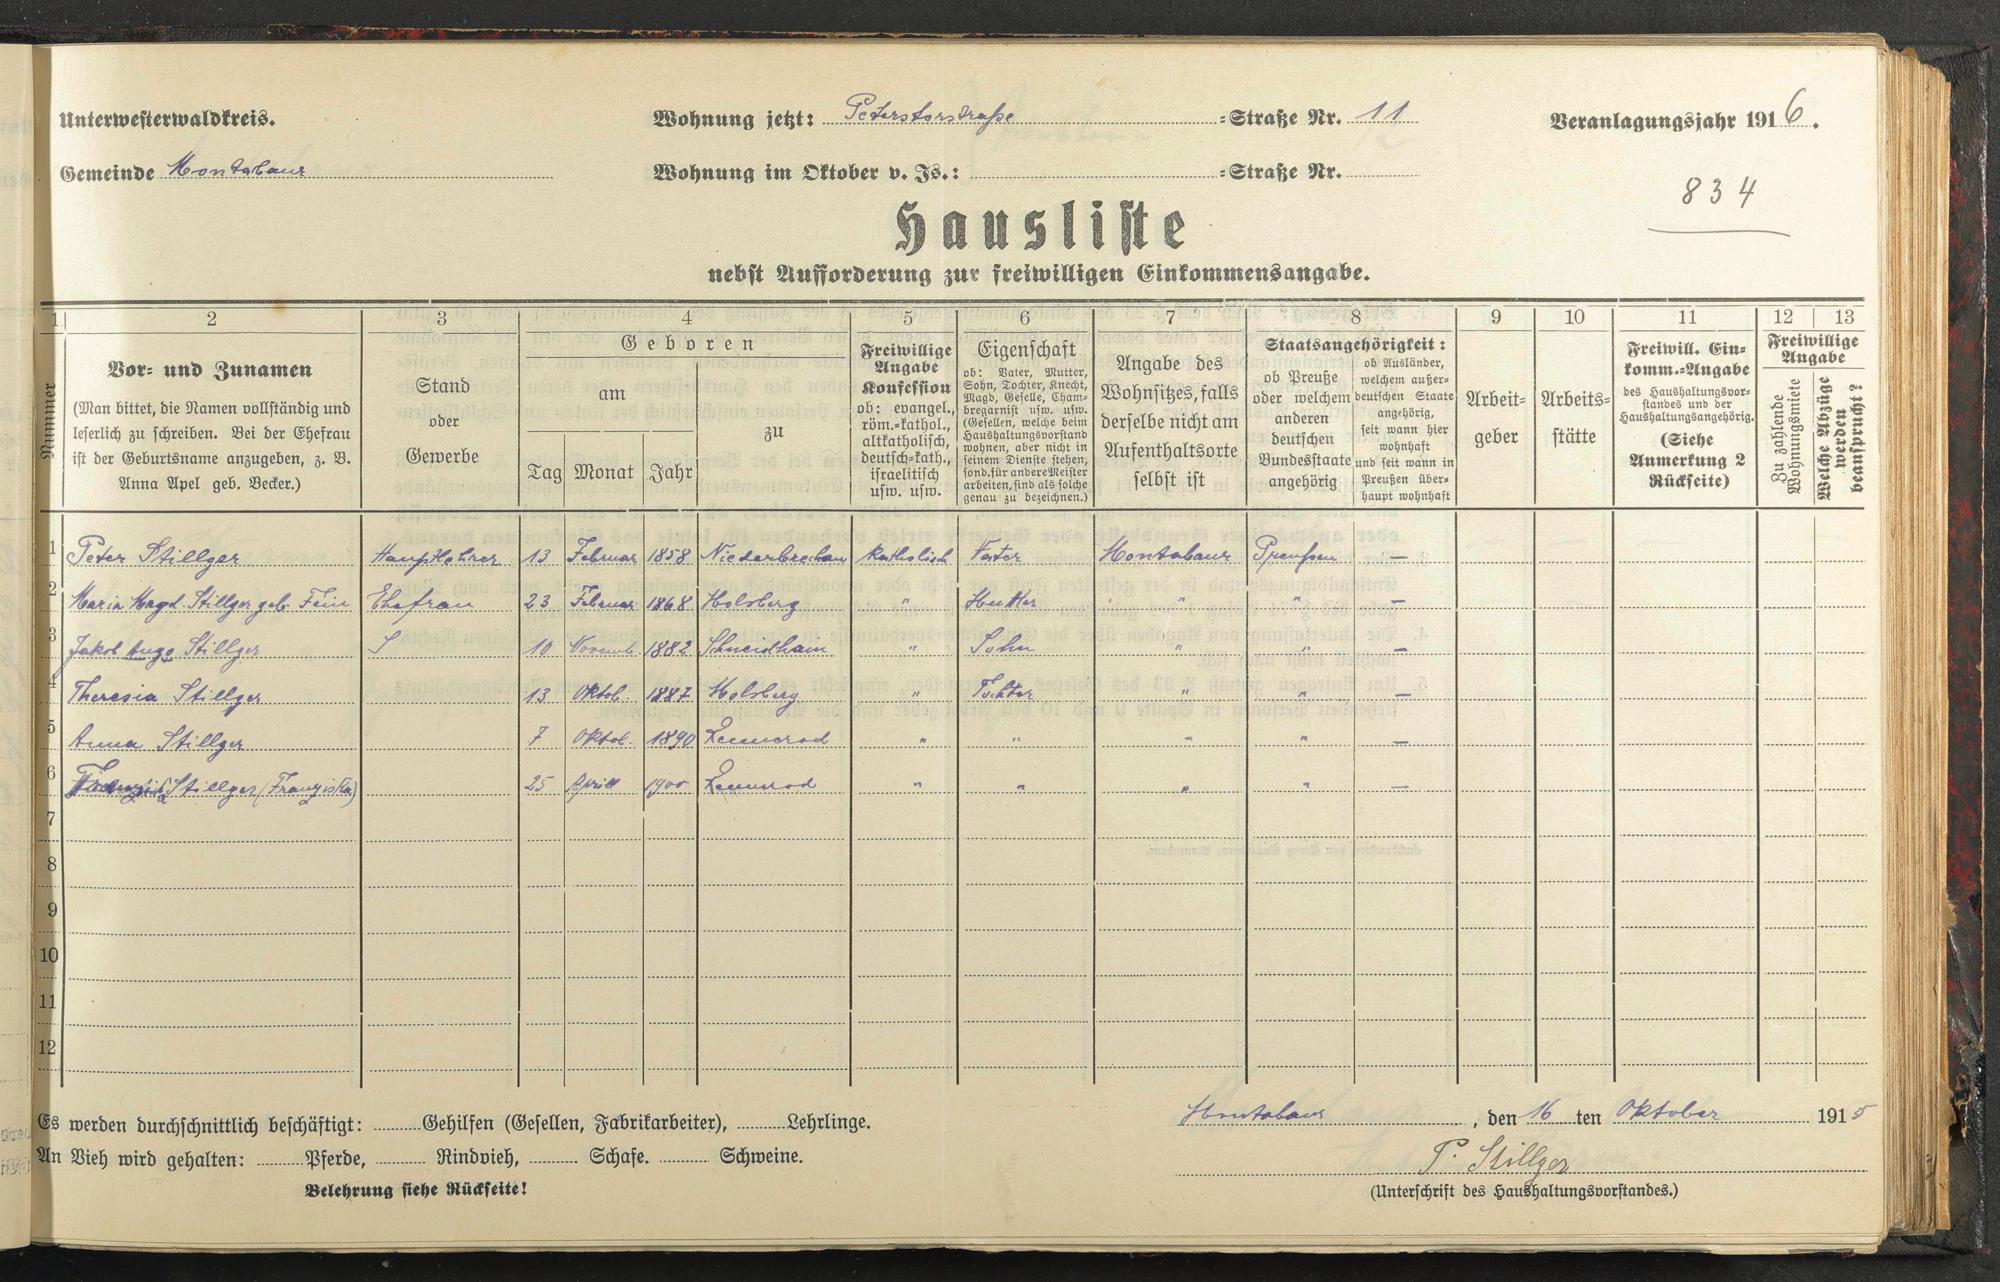 Unterwesterwaldkreis.
Wohnung jetzt: Peterstorstraße =Straße Nr. 11
Veranlagungsjahr 1916.
Gemeinde Montabaur
Wohnung im Oktober v. Js.: =Straße Nr.
834
Hausliste
nebst Aufforderung zur freiwilligen Einkommensangabe.
1 2 3 4 5 6 7 8 9 10 11 12 13
Nummer
Vor- und Zunamen
(Man bittet, die Namen vollständig und
leserlich zu schreiben. Bei der Ehefrau
ist der Geburtsname anzugeben, z. B.
Anna Apel geb. Becker.)
Stand
oder
Gewerbe
Geboren
am
Tag Monat Jahr
zu
Freiwillige
Angabe
Konfession
ob: evangel.,
röm.-kathol.,
altkatholisch,
deutsch-kath.,
israelitisch
usw. usw.
Eigenschaft
ob: Vater, Mutter,
Sohn, Tochter, Knecht,
Magd, Geselle, Cham-
bregarnist usw. usw.
(Gesellen, welche beim
Haushaltungsvorstand
wohnen, aber nicht in
seinem Dienste stehen,
sond. für andere Meister
arbeiten, sind als solche
genau zu bezeichnen.)
Angabe des
Wohnsitzes, falls
derselbe nicht am
Aufenthaltsorte
selbst ist
Staatsangehörigkeit:
ob Preuße
oder welchem
anderen
deutschen
Bundesstaate
angehörig
ob Ausländer,
welchem außer-
deutschen Staate
angehörig,
seit wann hier
wohnhaft
und seit wann in
Preußen über-
haupt wohnhaft
Arbeit-
geber
Arbeits-
stätte
Freiwill. Ein-
komm.-Angabe
des Haushaltungsvor-
standes und der
Haushaltungsangehörig.
(Siehe
Anmerkung 2
Rückseite)
Freiwillige
Angabe
Zu zahlende
Wohnungsmiete
Welche Abzüge
werden
beansprucht?
1 Peter Stillger Hauptlehrer 13 Februar 1858 Niederbrechen katholisch Vater Montabaur Preußen —
2 Maria Magd. Stillger geb. Fein Ehefrau 23 Februar 1868 Holsberg " Mutter " " —
3 Jakob Hugo Stillger 10 Novemb. 1882 Schneidhain " Sohn " " —
4 Theresia Stillger 13 Oktob. 1887 Holsberg " Tochter " " —
5 Anna Stillger 7 Oktob. 1890 Rennerod " " " " —
6 Stillger (Franziska) 25 April 1900 Rennerod " " " " —
7
8
9
10
11
12
Es werden durchschnittlich beschäftigt: Gehilfen (Gesellen, Fabrikarbeiter), Lehrlinge.
Montabaur, den 16 ten Oktober 1915
An Vieh wird gehalten: Pferde, Rindvieh, Schafe. Schweine.
P. Stillger
Belehrung siehe Rückseite!
(Unterschrift des Haushaltungsvorstandes.)